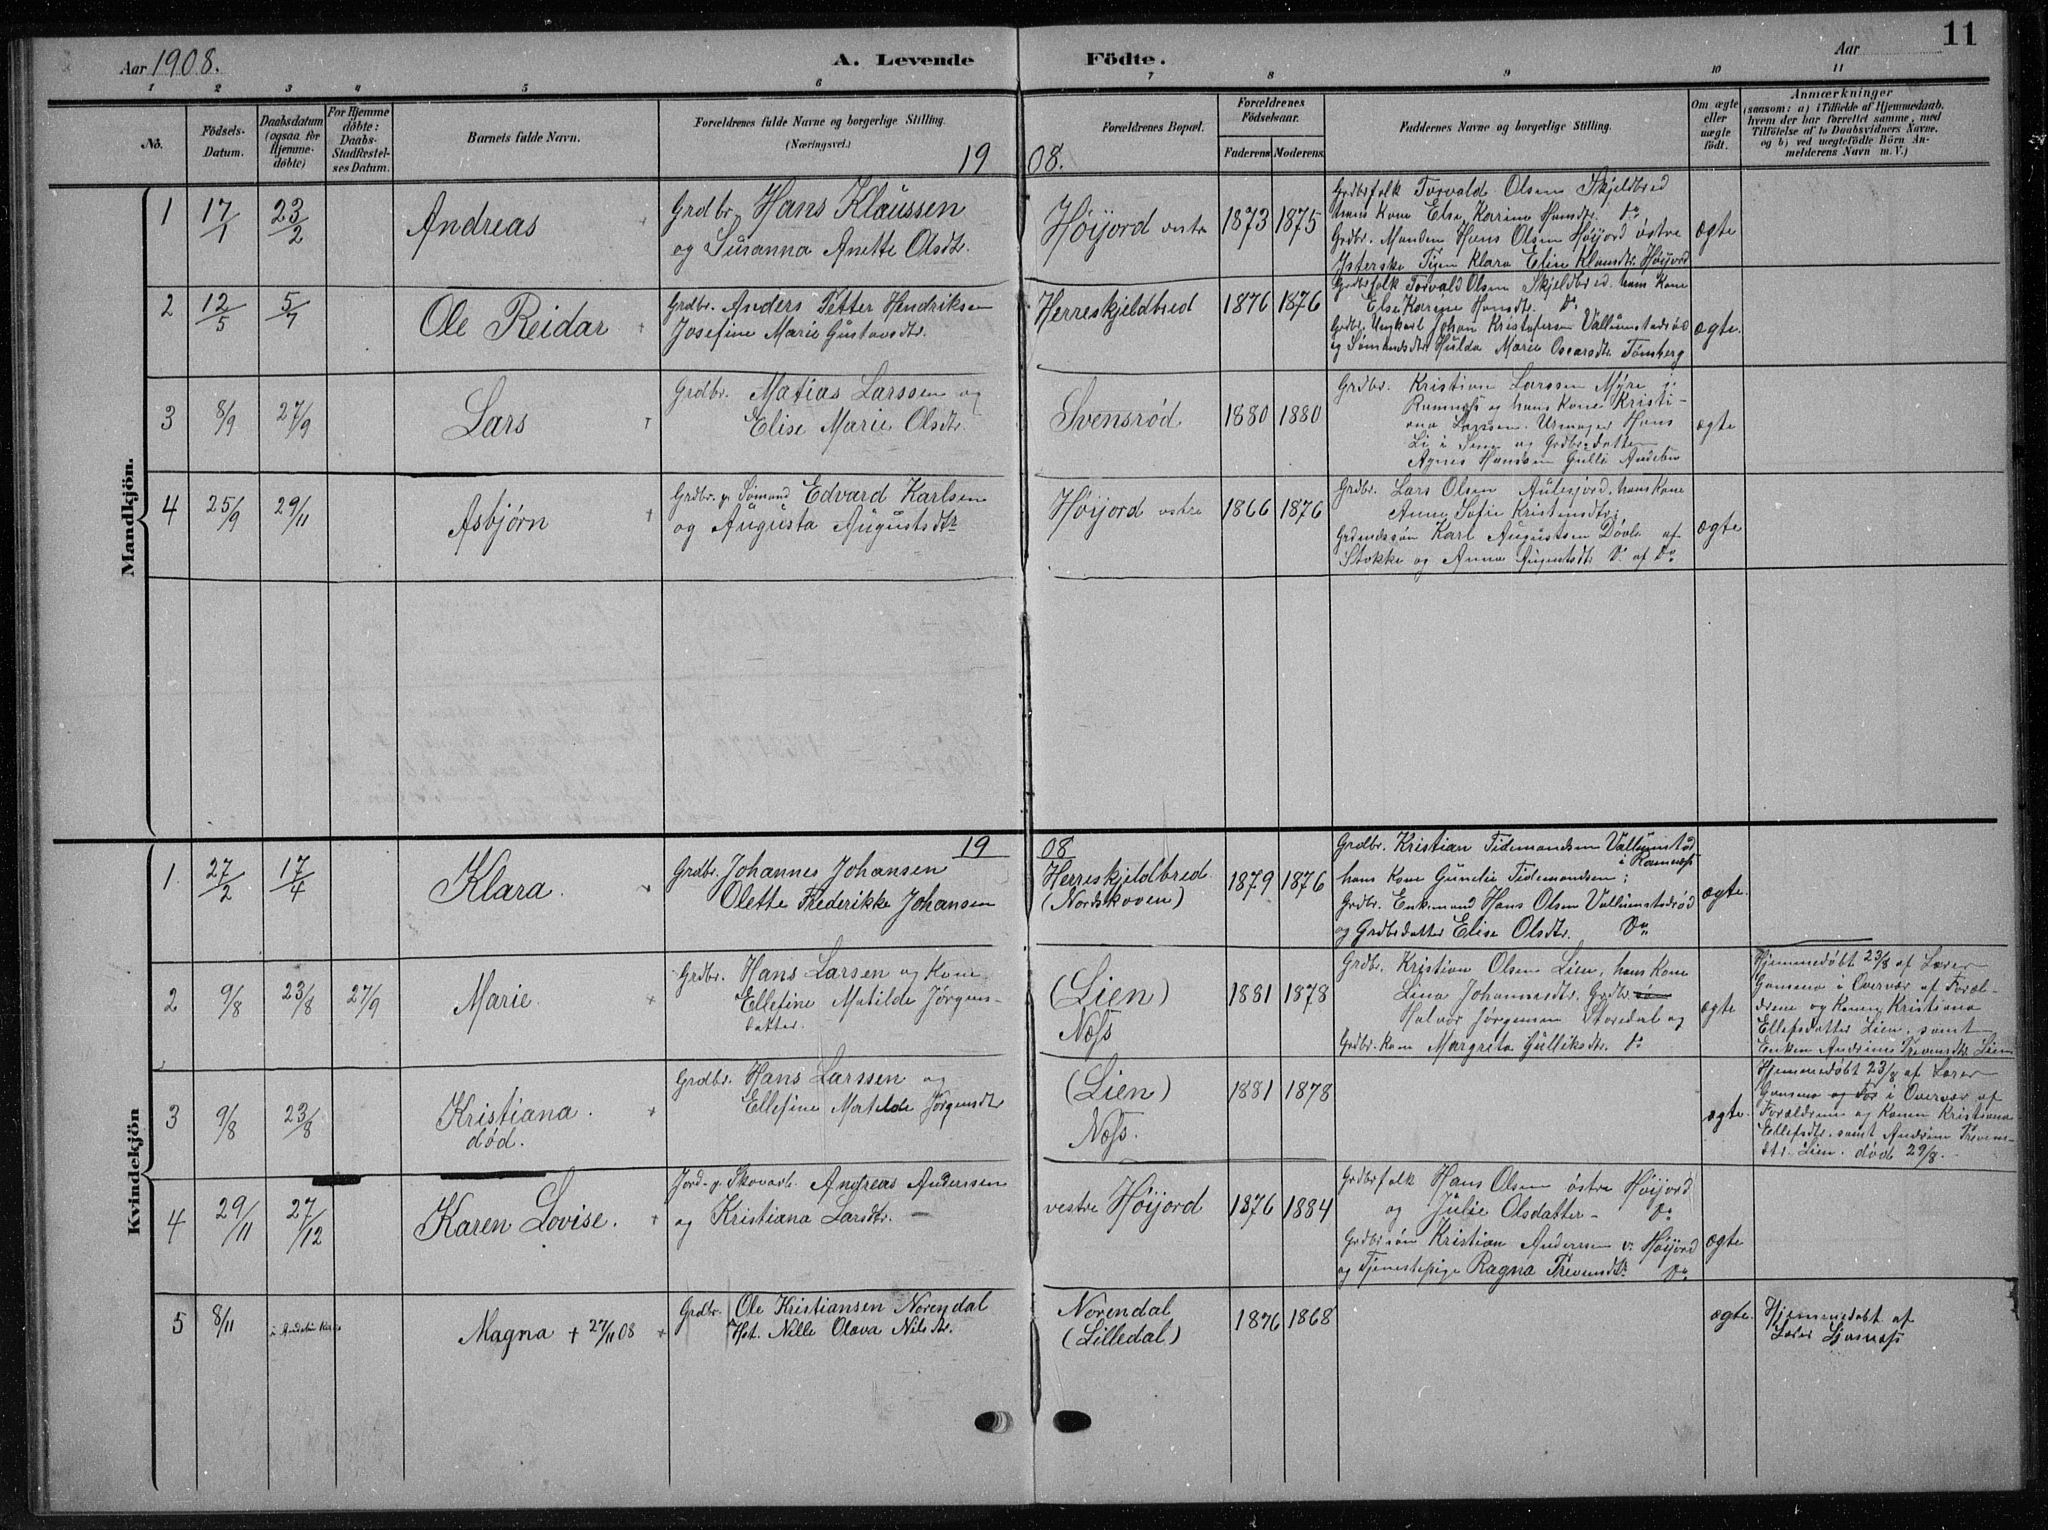 Aar 1908.
A. Levende Födte.
Aar
11
1 2 3 4 5 6 7 8 9 10 11
No.
Födsels-Datum.
Daabsdatum (ogsaa for Hjemme-döbte)
For Hjemme döbte: Daabs-Stadfæstel-ses Datum.
Barnets fulde Navn.
Forældrenes fulde Navne og borgerlige Stilling.
(Næringsvei.)
Forældrenes Bopæl.
Forældrenes Födselsaar.
Faderens Moderens
Faddernes Navne og borgerlige Stilling.
Om ægte eller uægte födt.
Anmærkninger
(saasom: a) i Tilfælde af Hjemmedaab,
hvem der har forrettet samme, med
Tilföielse af to Daabsvidners Navne,
og b) ved uægtefödte Börn An-
melderens Navn m. V.)
1908.
Mandkjön.
1 17/1 23/2 Andreas
Grdbr. Hans Klaussen
og Susanna Anette Olsdtr.
Höijord østre 1873 1875
Grdbrfolk Torvald Olsen Skjeldbred
hans Kone Else Karine Hansdtr. Do
Grdbr. Manden Hans Olsen Höijord östre
Klara Elise Klausdtr. Höijord
ægte
2 12/5 5/7 Ole Reidar
Grdbr. Anders Petter Hendriksen
Josefine Marie Gustavsdtr.
Herreskjeldbred 1876 1876
Grdbrfolk Torvald Olsen Skjeldbred, hans Kone
Else Karine Hansdtr. Do
Grdbr. Ungkarl Johan Kristofersen Vallumstadrød
og Sømandsdtr. Hulda Marie Oscarsdtr. Tønsberg
ægte.
3 8/9 27/9 Lars
Grdbr. Matias Larssen og
Elise Marie Olsdtr.
Svensrød 1880 1880
Grdbr. Kristian Larssen Myre i
Ramnæs og hans Kone Kristi-
ana Larssen. Urmager Hans
Li i Sem og Grdbrdatter
Agnes Hanssen Gulli Andebu
ægte
4 25/9 29/11 Asbjørn
Grdbr. og Sømand Edvard Karlsen
og Augusta Augustsdtr
Höijord østre 1866 1876
Grdbr. Lars Olsen Aulesjord, hans Kone
Anne Sofie Kristensdtr;
Grdmdssøn Karl Augustsen Døvle af
Stokke og Anna Augustsdtr D. af Do
ægte
1908
Kvindekjön
1 27/2 17/4 Klara.
Grdbr. Johannes Johansen
Olette Frederikke Johansen
Herreskjeldbred
(Nordskoven) 1879 1876
Grdbr. Kristian Tidemandsen Vallumstød
i Ramnæs
hans Kone Gunelie Tidemandsen;
Grdbr. Enkemand Hans Olsen Vallumstadrød
og Grdbrdatter Elise Olsdtr. Do
ægte.
2 9/8 23/8 27/9 Marie
Grdbr. Hans Larsen og Kone
Ellefine Matilde Jørgens-
datter.
(Lien)
Næs 1881 1878
Grdbr. Kristian Olsen Lien, hans Kone
Lina Johannesdtr. Grdbr
Halvor Jørgensen Storedal og
Grdbr. Kone Margrete Gulliksdtr. Do
ægte
Hjemmedøbt 23/8 af Lærer
i Overvær af Foræl-
drene og Konen Kristiana
Ellefsdatter Lien, samt
Enken Andrine Trevensdtr. Lien
3 9/8 23/8 Kristiana.
død.
Grdbr. Hans Larssen og
Ellefine Matilde Jørgensdtr
(Lien)
Næs. 1881 1878
ægte.
Hjemmedøbt 23/8 af Lærer
i Overvær af
Forældrene og Konen Kristiana
Ellefsdtr. samt Andrine Trevens-
dtr. Lien. død 29/8.
4 29/11 27/12 Karen Lovise.
Jord- og Skovarb. Andreas Andersen
og Kristiana Larsdtr.
vestre Höijord 1876 1884
Grdbrfolk Hans Olsen östre Höijord
og Julie Olsdatter Do
Grdbrsön Kristian Andersen v. Höijord
og Tjenestepige Ragna Trevensdtr. Do
ægte
5 8/11 i Andebu Kirke Magna + 27/11 08
Grdbr. Ole Kristiansen Norendal
Hst. Nille Olava Nilsdtr.
Norendal
(Lilledal) 1876 1868
ægte.
Hjemmedøbt af
Lærer